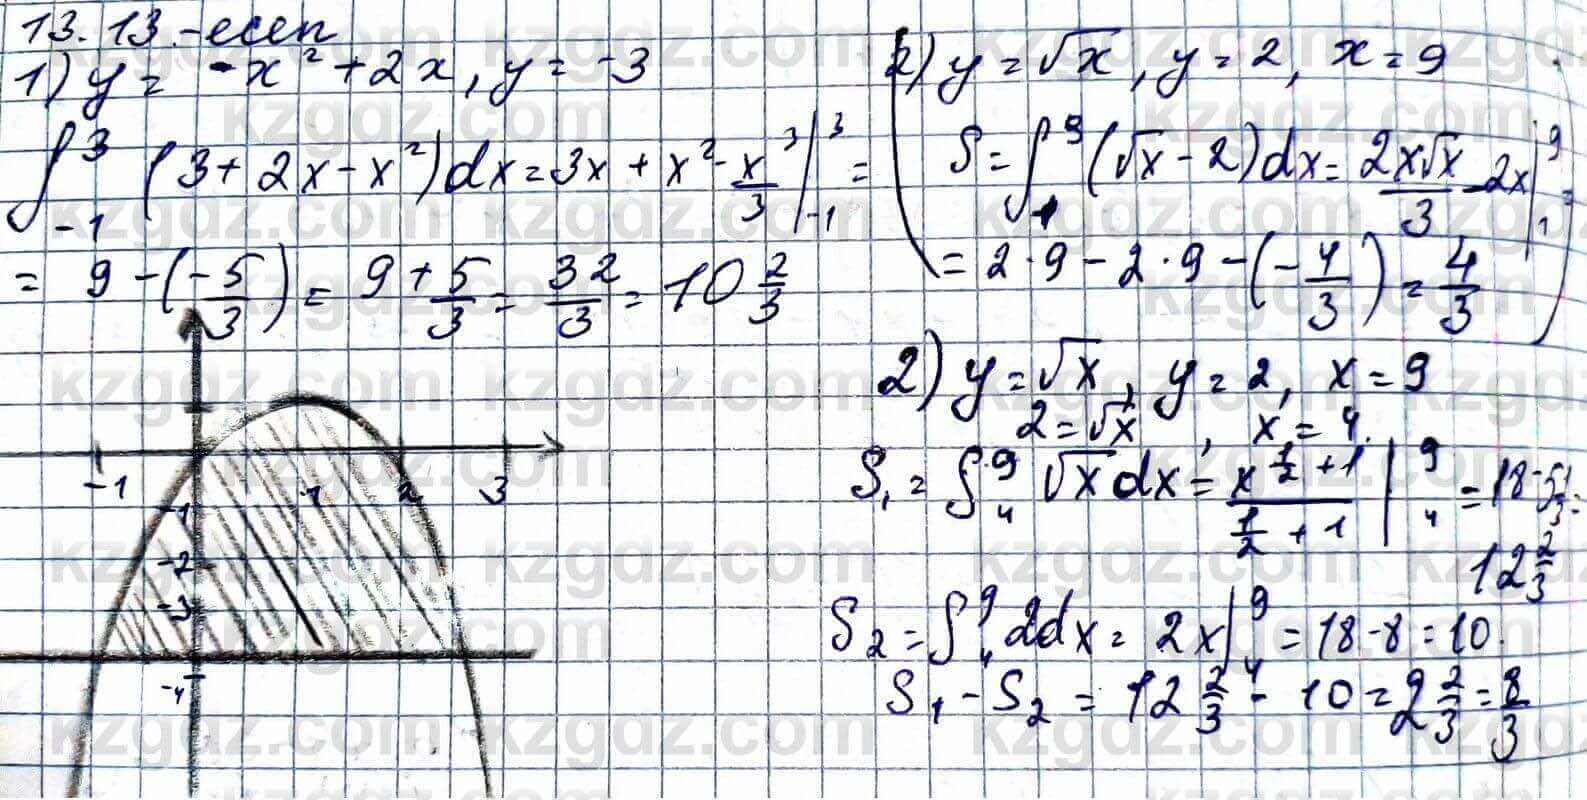 13.13-есеп
1) y = -x² + 2x, y = -3
∫₋₁³ (3 + 2x - x²)dx = 3x + x² - x³/3 |₋₁³ =
= 9 - (-5/3) = 9 + 5/3 = 32/3 = 10 2/3
-1 1 2 3
-1
-2
-3
-4
2) y = √x, y = 2, x = 9
S = ∫₁⁹ (√x - 2)dx = 2x√x/3 - 2x |₁⁹ =
= 2·9 - 2·9 - (-4/3) = 4/3
2) y = √x, y = 2, x = 9
2 = √x, x = 4.
S₁ = ∫₄⁹ √x dx = x^(1/2 + 1)/(1/2 + 1) |₄⁹ = 18 - 5 1/3 =
12 2/3
S₂ = ∫₄⁹ 2dx = 2x |₄⁹ = 18 - 8 = 10.
S₁ - S₂ = 12 2/3 - 10 = 2 2/3 = 8/3
kzgdz.com